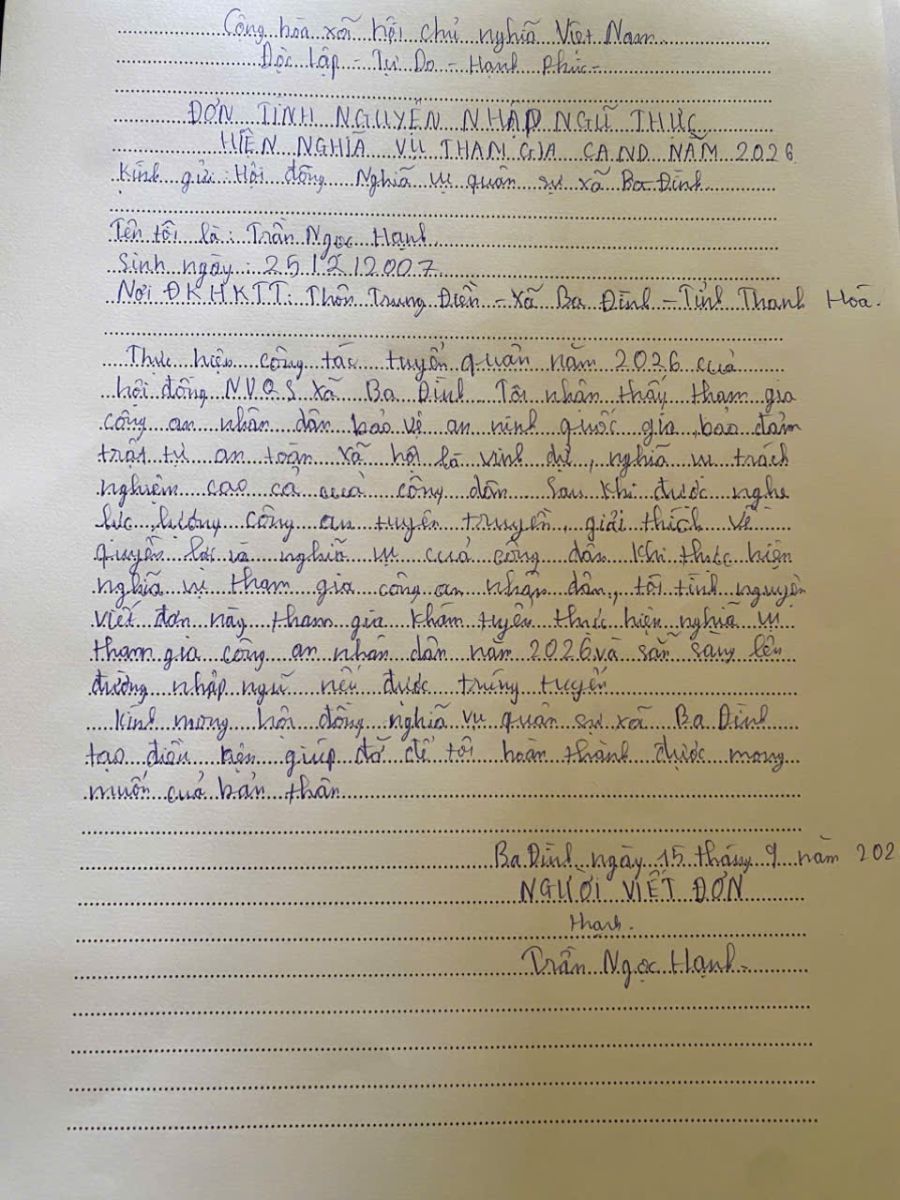 Cộng hòa xã hội chủ nghĩa Việt Nam
Độc lập - Tự Do - Hạnh Phúc -
ĐƠN TÌNH NGUYỆN NHẬP NGŨ THỰC
HIỆN NGHĨA VỤ THAM GIA CAND NĂM 2026
Kính gửi: Hội đồng Nghĩa vụ quân sự xã Ba Đình
Tên tôi là: Trần Ngọc Hạnh
Sinh ngày: 25/2/2007
Nơi ĐKHKTT: Thôn Trung Điền - Xã Ba Đình - Tỉnh Thanh Hoá.
Thực hiện công tác tuyển quân năm 2026 cuả
hội đồng NVQS xã Ba Đình Tôi nhân thấy tham gia
công an nhân dân bảo vệ an ninh quốc gia, bảo đảm
trật tự an toàn xã hội là vinh dự, nghĩa vụ trách
nghiệm cao cả cuả công dân. Sau khi được nghe
lực lượng công an tuyên truyền, giải thích về
quyền lợi và nghĩa vụ cuả công dân khi thực hiện
nghĩa vụ tham gia công an nhân dân, tôi tình nguyện
viết đơn này tham gia khám tuyển thực hiện nghĩa vụ
tham gia công an nhân dân năm 2026 và sẵn sàng lên
đường nhập ngũ nếu được trúng tuyển
Kính mong hội đồng nghĩa vụ quân sự xã Ba Đình
tạo điều kiện giúp đỡ để tôi hoàn thành được mong
muốn cuả bản thân
Ba Đình ngày 15 tháng 9 năm 202
NGƯỜI VIẾT ĐƠN
Hạnh.
Trần Ngọc Hạnh -